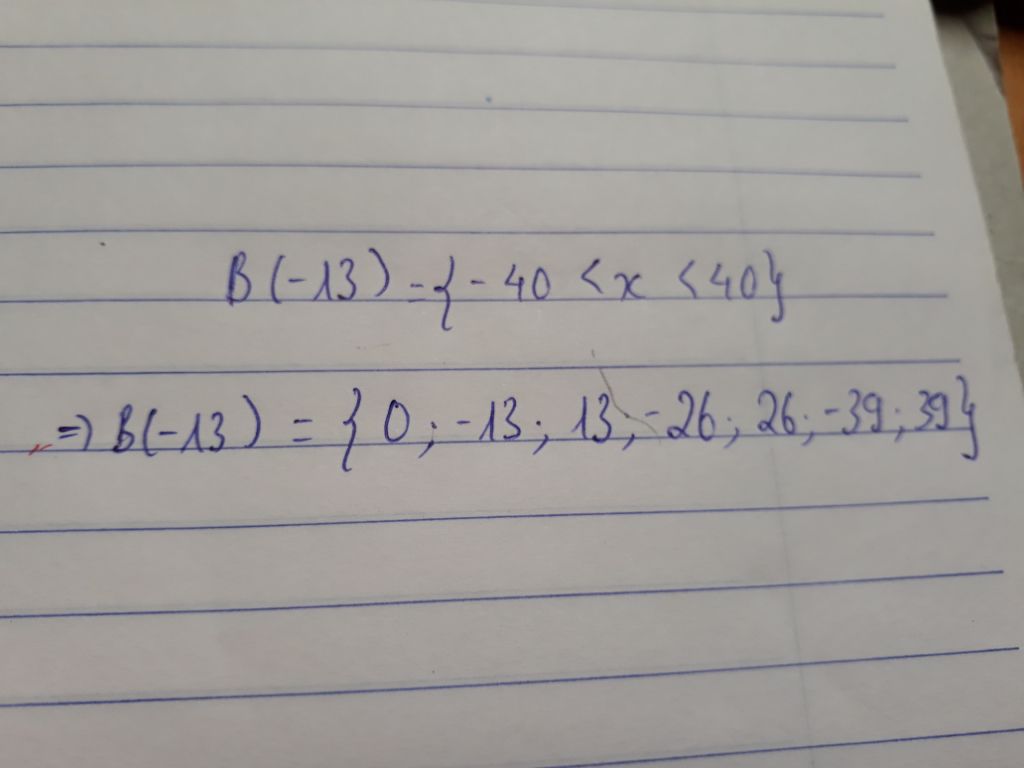 B(-13) = {-40 < x < 40}
=> B(-13) = {0; -13; 13; -26; 26; -39; 39}